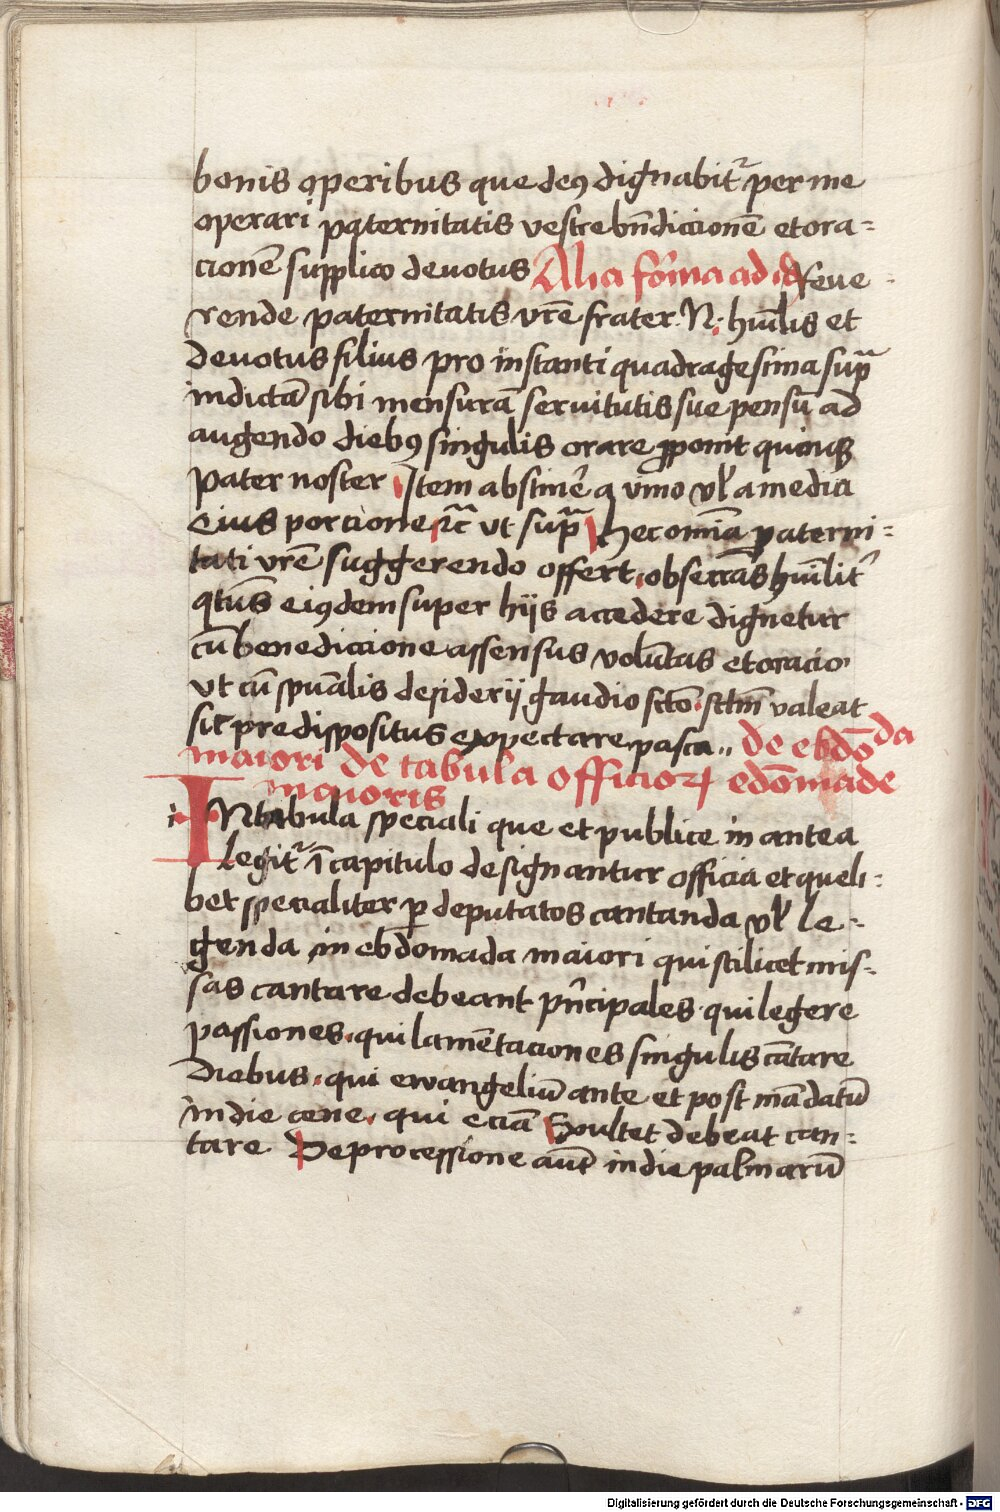 bonis operibus que deꝰ dignabit̃ per me
operari paternitatis vestre bn̄diccionē et ora-
cionē supplico deuotus Alia for̄ma ad id Reue-
rende paternitatis vr̄e frater N. hu̅ilis et
deuotus filius pro instanti quadragesima sup̄
indictā sibi mensurā seruitutis sue pensū ad
augendo diebꝰ singulis orare ꝓponit quinqꝫ
Pater noster Item abstinēe a vino vl̕ a media
eius porcione ⁊c̄ ut sup̄ Hec om̄ia paterni-
tati vr̄e suggerendo offert obsecrās hu̅ilit̕
qt̄us eiꝰdem super hijs accedere dignetur
cū benediccione assensus volūtas et oracio
vt cū sp̄ualis desiderij gaudio sc̄to sc̄tm̄ valeat
sic predispositus expectare pasca de ebdōda
maiori de tabula officioꝝ edōmade
maioris
i IN tabula speciali que et publice in antea
legit̃ ī capitulo designantur officia et queli-
bet specialiter ꝑ deputatos cantanda vl̕ le-
genda in ebdomada maiori qui scilicet mis-
sas cantare debeant pn̄cipales qui legere
passiones qui lamētaciones singulis cātare
diebus qui ewangeliū ante et post mādatū
in die cene qui eciā Exultet debeat can-
tare De processione aūt in die palmarū
Digitalisierung gefördert durch die Deutsche Forschungsgemeinschaft - DFG